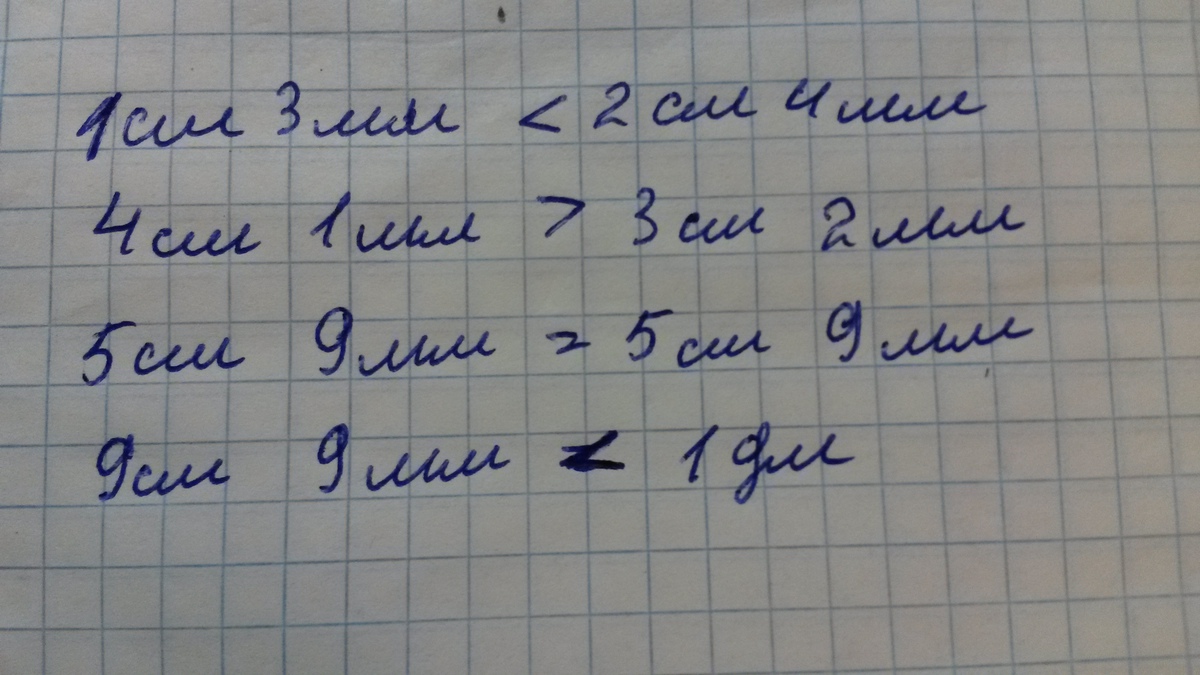 1см 3мм < 2см 4мм
4см 1мм > 3см 2мм
5см 9мм = 5см 9мм
9см 9мм < 1дм